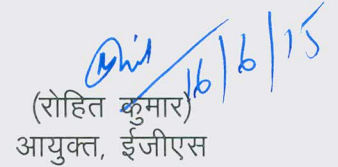 16/6/15
(रोहित कुमार)
आयुक्त, ईजीएस